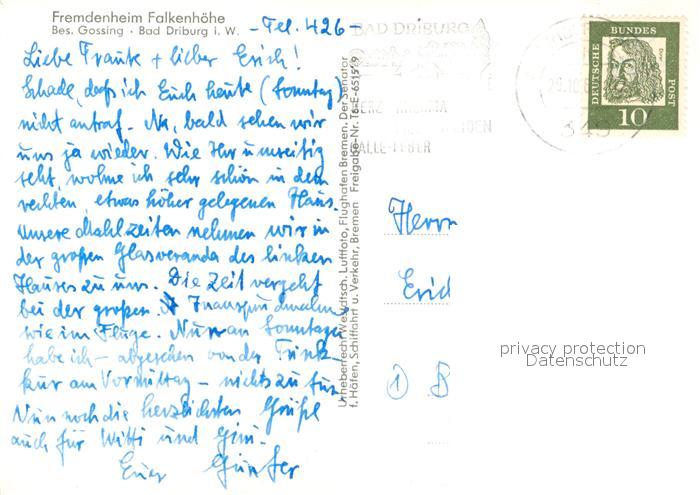 Fremdenheim Falkenhöhe
Bes. Gossing · Bad Driburg i. W.
- Tel. 426 -
Liebe Traute + lieber Erich!
Schade, daß ich Euch heute (Sonntag)
nicht antraf. Na, bald sehen wir
uns ja wieder. Wie Ihr umseitig
seht, wohne ich sehr schön in dem
rechten, etwas höher gelegenen Haus.
Unsere Mahlzeiten nehmen wir in
der großen Glasveranda des linken
Hauses zu uns. Die Zeit vergeht
bei der großen
wie im Fluge. Nur an Sonntagen
habe ich - abgesehen von der Trink-
kur am Vormittag - nichts zu tun.
Nun noch die herzlichsten Grüße
auch für Witti und
Euer Günter
Urheberrecht Westdtsch. Luftfoto, Flughafen Bremen. Der Senator
f. Häfen, Schiffahrt u. Verkehr, Bremen Freigabe-Nr.
BAD DRIBURG
HERZ
GALLE-LEBER
29.10.6
DEUTSCHE BUNDESPOST
Dürer
10
Herrn
Erich
① B
privacy protection
Datenschutz